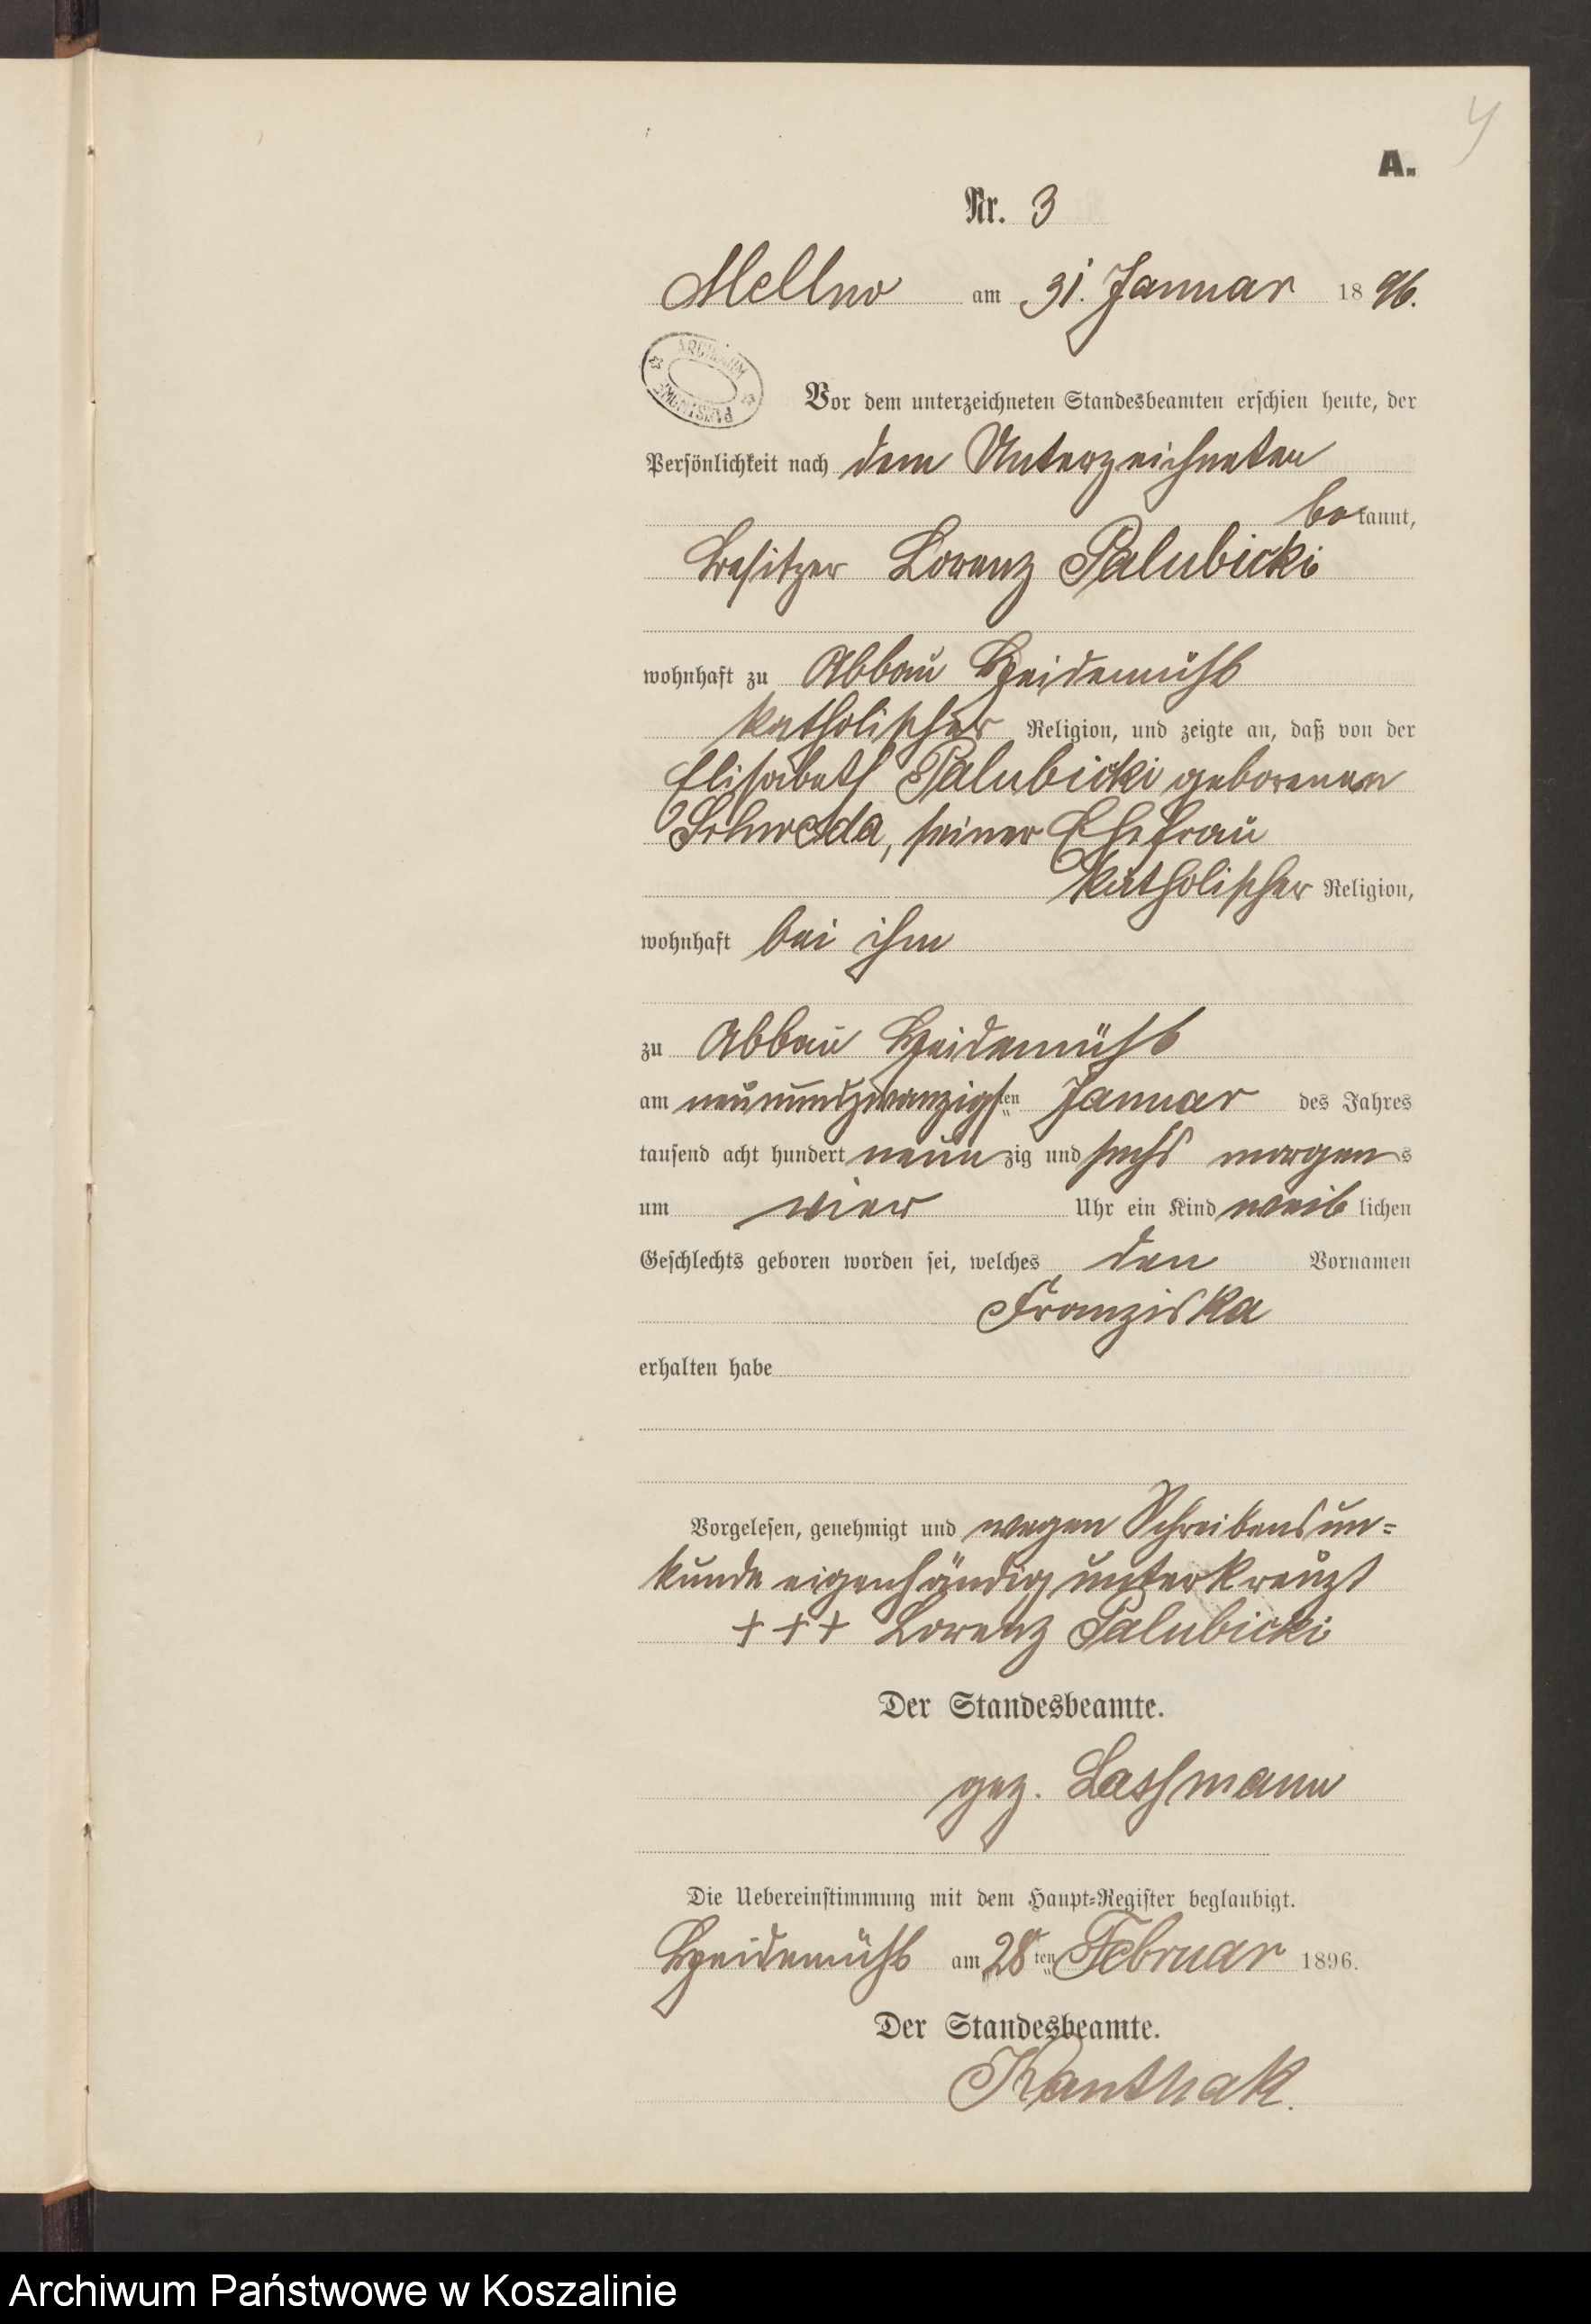 4
A.
Nr. 3
Mellno am 31. Januar 1896.
ARCHIWUM PAŃSTWOWE
Vor dem unterzeichneten Standesbeamten erschien heute, der
Persönlichkeit nach dem Unterzeichneten
bekannt,
Besitzer Lorenz Palubicki
wohnhaft zu Abbau Heidemühl
katholischer Religion, und zeigte an, daß von der
Elisabeth Palubicki geborenen
Schweda, seiner Ehefrau
katholischer Religion,
wohnhaft bei ihm
zu Abbau Heidemühl
am neunundzwanzigsten Januar des Jahres
tausend acht hundert neunzig und sechs morgens
um vier Uhr ein Kind weiblichen
Geschlechts geboren worden sei, welches den Vornamen
Franziska
erhalten habe
Vorgelesen, genehmigt und wegen Schreibensun-
kunde eigenhändig unterkreuzt
+++ Lorenz Palubicki
Der Standesbeamte.
gez. Laschmann
Die Uebereinstimmung mit dem Haupt-Register beglaubigt.
Heidemühl am 28ten Februar 1896.
Der Standesbeamte.
Kanthak.
Archiwum Państwowe w Koszalinie